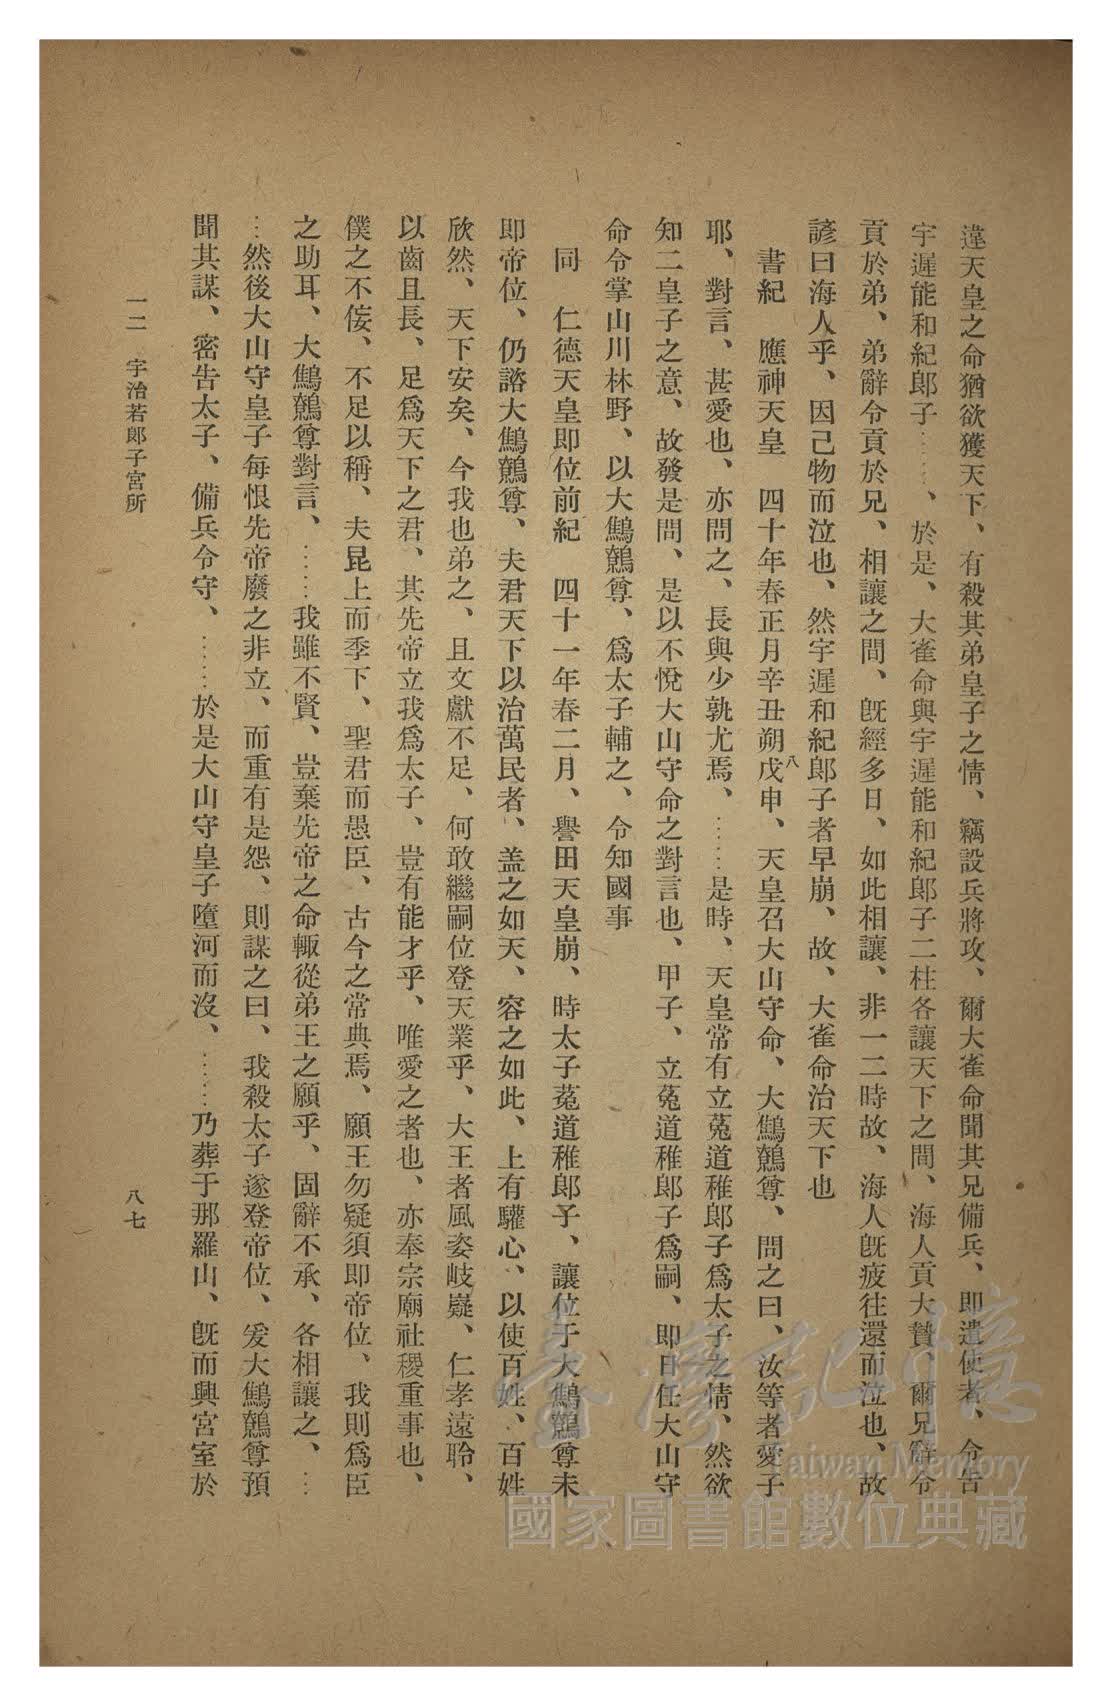 違天皇之命猶欲獲天下、有殺其弟皇子之情、竊設兵將攻、爾大雀命聞其兄備兵、即遣使者、令告
宇遲能和紀郞子……、於是、大雀命與宇遲能和紀郞子二柱各讓天下之間、海人貢大贄、爾兄辭令
貢於弟、弟辭令貢於兄、相讓之間、旣經多日、如此相讓、非一二時故、海人旣疲往還而泣也、故
諺曰海人乎、因己物而泣也、然宇遲和紀郞子者早崩、故、大雀命治天下也
書紀　應神天皇　四十年春正月辛丑朔戊申、天皇召大山守命、大鷦鷯尊、問之曰、汝等者愛子
八
耶、對言、甚愛也、亦問之、長與少孰尤焉、……是時、天皇常有立菟道稚郞子爲太子之情、然欲
知二皇子之意、故發是問、是以不悅大山守命之對言也、甲子、立菟道稚郞子爲嗣、即日任大山守
命令掌山川林野、以大鷦鷯尊、爲太子輔之、令知國事
同　仁德天皇即位前紀　四十一年春二月、譽田天皇崩、時太子菟道稚郞子、讓位于大鷦鷯尊未
即帝位、仍諮大鷦鷯尊、夫君天下以治萬民者、盖之如天、容之如此、上有驩心、以使百姓、百姓
欣然、天下安矣、今我也弟之、且文獻不足、何敢繼嗣位登天業乎、大王者風姿岐嶷、仁孝遠聆、
以齒且長、足爲天下之君、其先帝立我爲太子、豈有能才乎、唯愛之者也、亦奉宗廟社稷重事也、
僕之不侫、不足以稱、夫昆上而季下、聖君而愚臣、古今之常典焉、願王勿疑須即帝位、我則爲臣
之助耳、大鷦鷯尊對言、……我雖不賢、豈棄先帝之命輙從弟王之願乎、固辭不承、各相讓之、…
…然後大山守皇子每恨先帝廢之非立、而重有是怨、則謀之曰、我殺太子遂登帝位、爰大鷦鷯尊預
聞其謀、密告太子、備兵令守、……於是大山守皇子墮河而沒、……乃葬于那羅山、旣而興宮室於
一二　宇治若郞子宮所
八七
臺灣記憶
Taiwan Memory
國家圖書館數位典藏